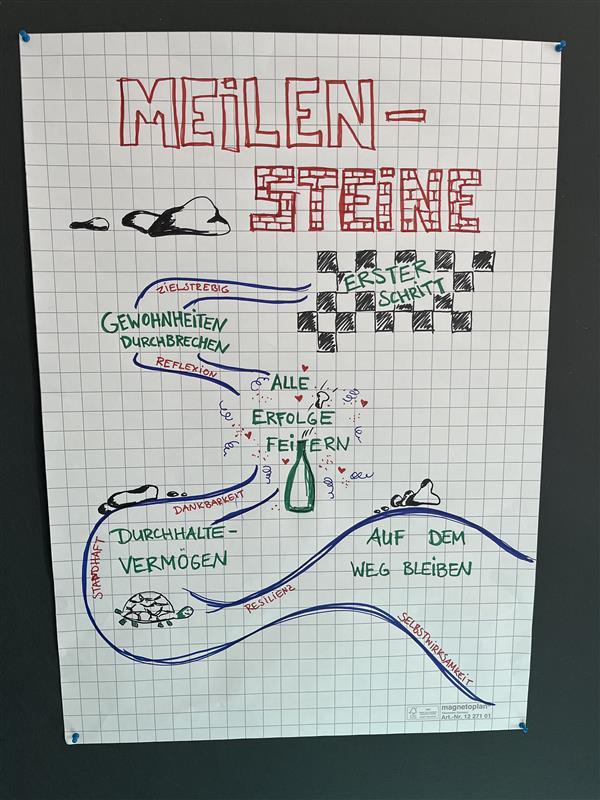 MEILEN-
STEINE
ERSTER
SCHRITT
ZIELSTREBIG
GEWOHNHEITEN
DURCHBRECHEN
REFLEXION
ALLE
ERFOLGE
FEIERN
DANKBARKEIT
DURCHHALTE-
VERMÖGEN
STANDHAFT
AUF DEM
WEG BLEIBEN
RESILIENZ
SELBSTWIRKSAMKEIT
magnetoplan
Art.-Nr. 12 271 01